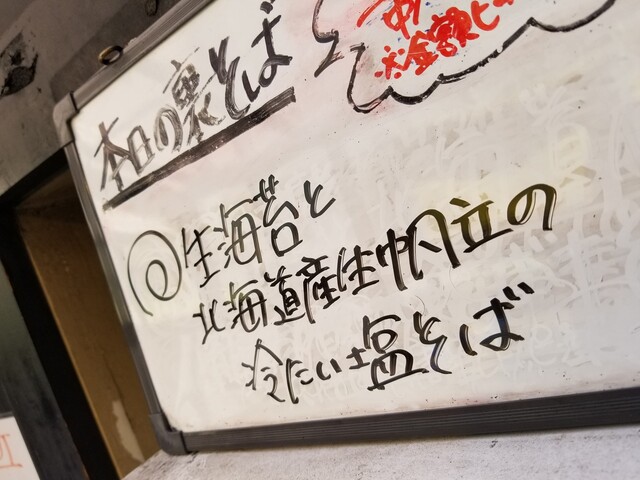 本日の裏そば
※金額
生海苔と
北海道産生帆立の
冷たい塩そば